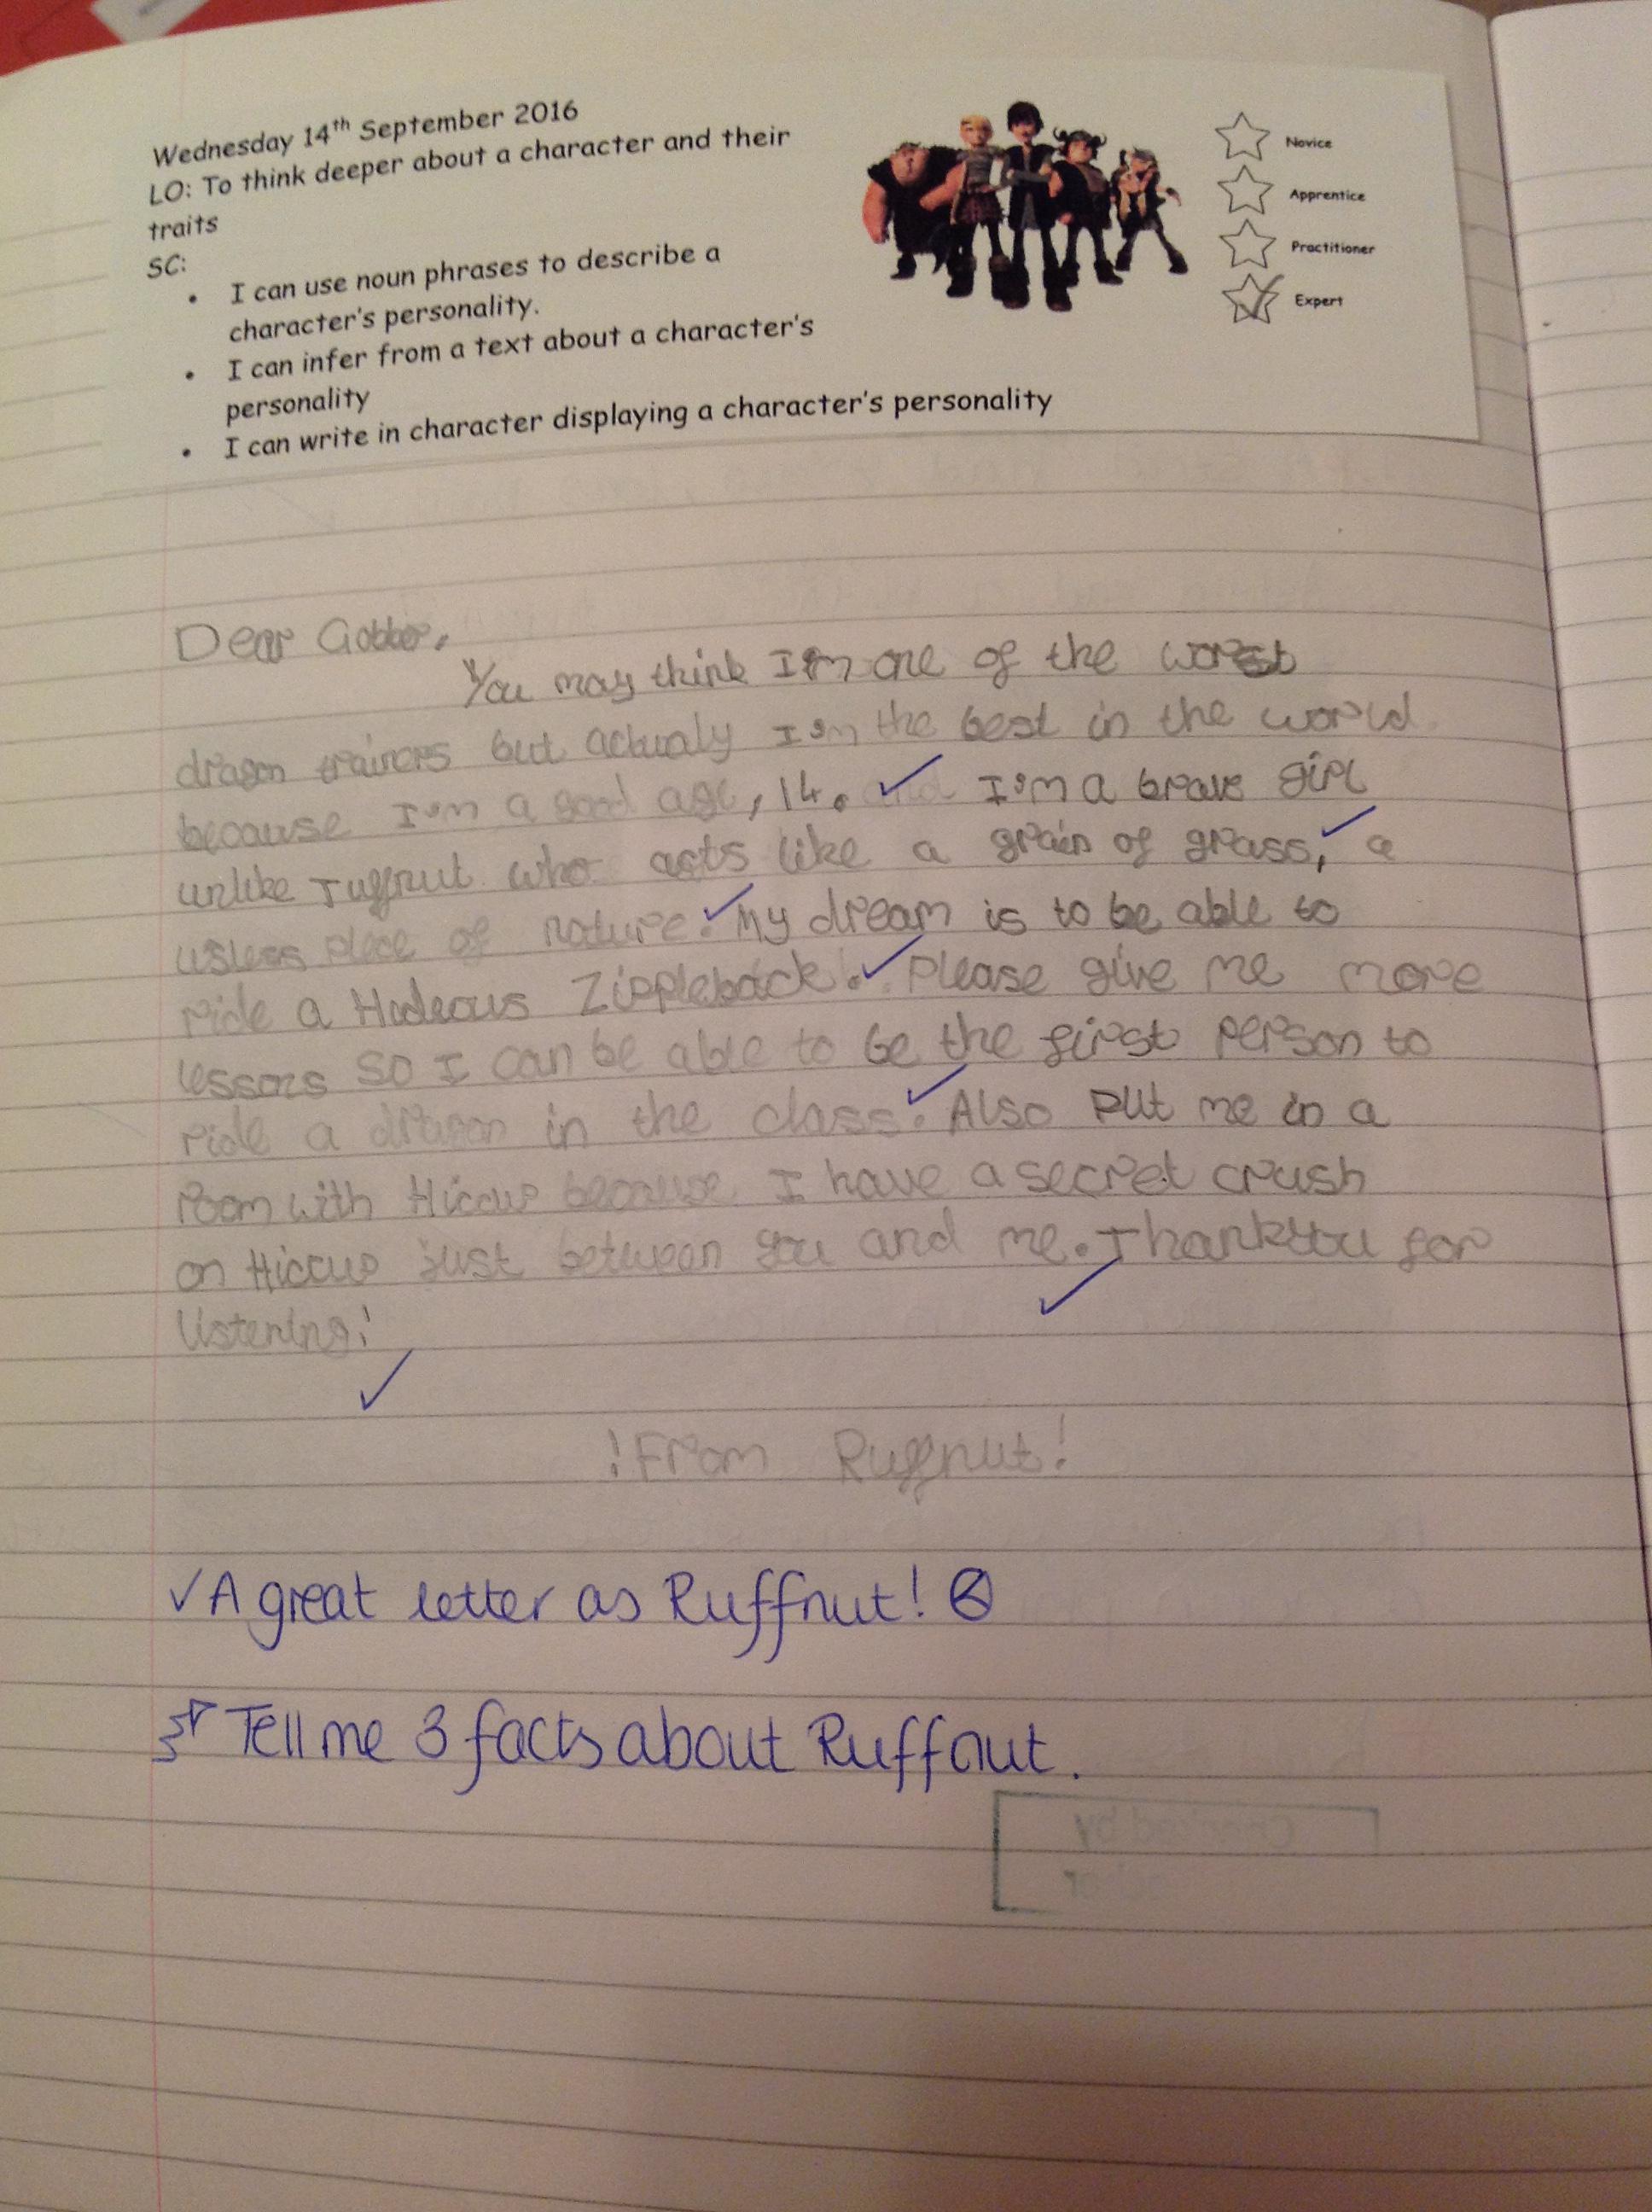 Wednesday 14th September 2016
LO: To think deeper about a character and their
traits
SC:
• I can use noun phrases to describe a
character's personality.
• I can infer from a text about a character's
personality
• I can write in character displaying a character's personality
Novice
Apprentice
Practitioner
Expert
Dear Gobber,
You may think I'm one of the worst
dragon trainers but actualy I'm the best in the world
because I'm a good age, 14. and I'm a brave girl
unlike Tuffnut who acts like a grain of grass, a
usless piece of nature. My dream is to be able to
ride a Hideous Zippleback!. Please give me more
lessons so I can be able to be the first person to
ride a dragon in the class. Also put me in a
room with Hiccup because I have a secret crush
on Hiccup just between you and me. Thankyou for
listening!
!From Ruffnut!
✓ A great letter as Ruffnut!
Tell me 3 facts about Ruffnut.
Checked by